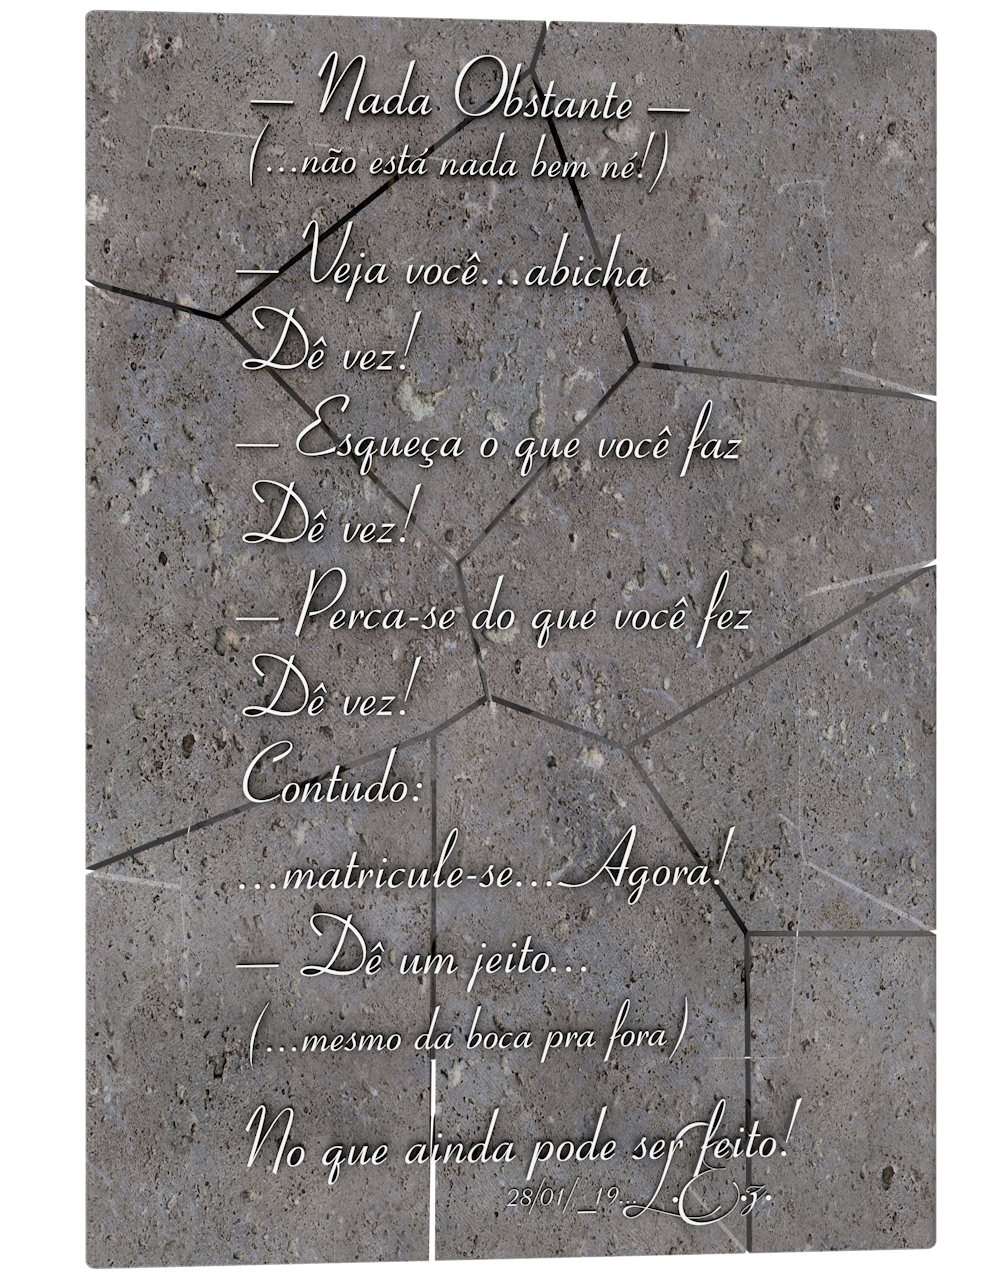 — Nada Obstante —
(...não está nada bem né!)
— Veja você...abicha
Dê vez!
— Esqueça o que você faz
Dê vez!
— Perca-se do que você fez
Dê vez!
Contudo:
...matricule-se...Agora!
— Dê um jeito...
(...mesmo da boca pra fora)
No que ainda pode ser feito!
28/01/_19...L.E.z.